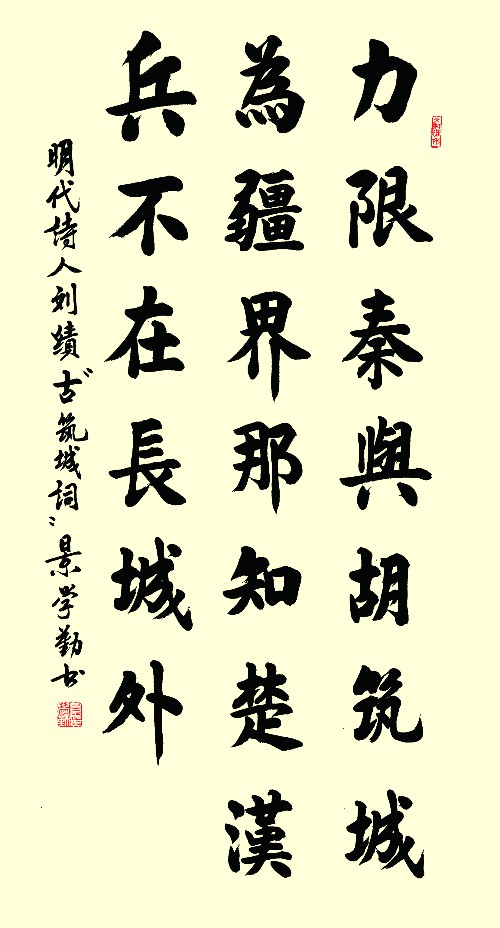 力限秦與胡筑城
為疆界那知楚漢
兵不在長城外
明代詩人刘績“古筑城詞”景学勤书